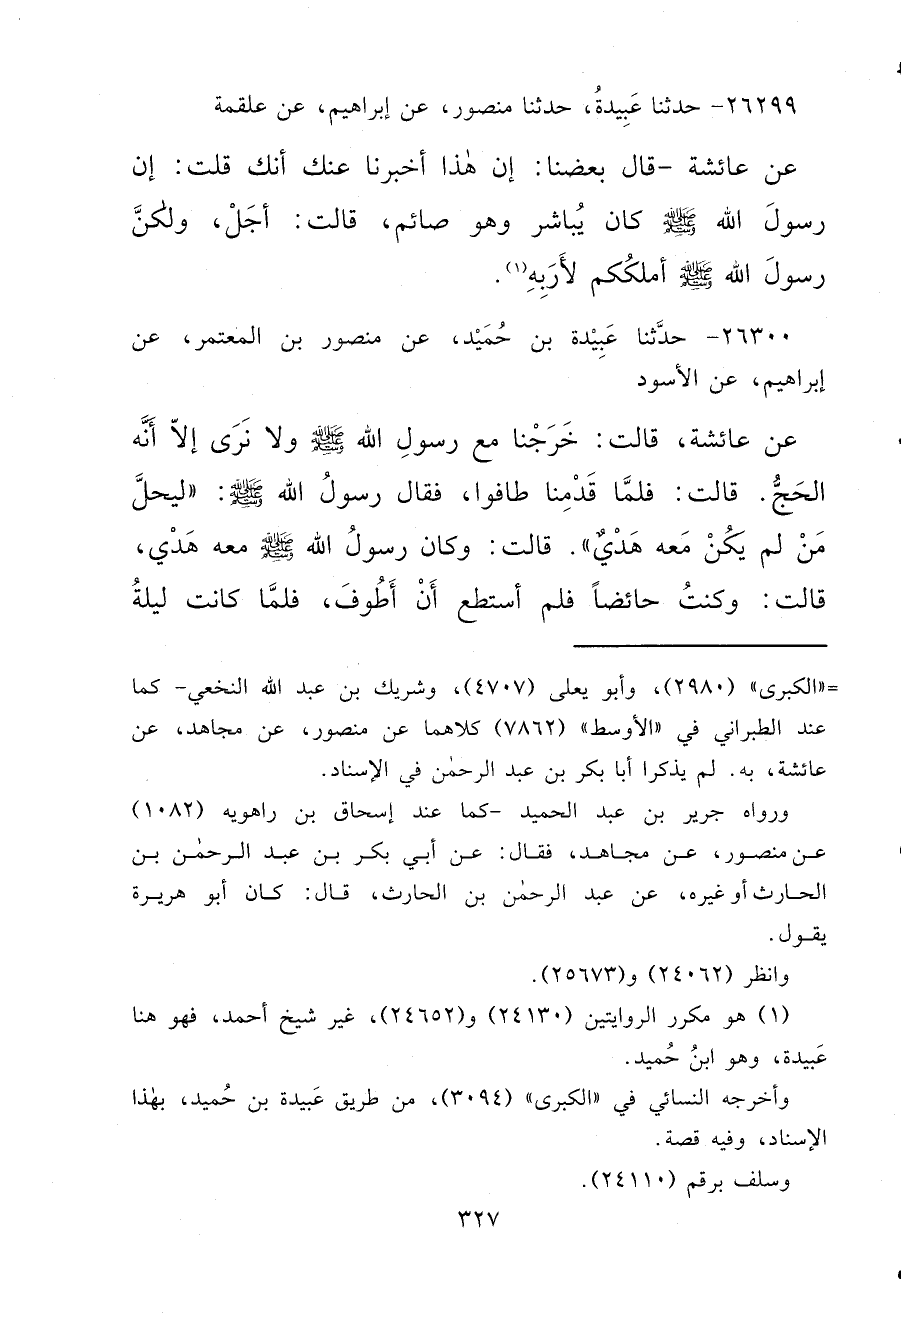 ٢٦٢٩٩- حدثنا عَبِيدةُ، حدثنا منصور، عن إبراهيم، عن علقمة
عن عائشة -قال بعضنا: إن هٰذا أخبرنا عنك أنك قلت: إن
رسولَ الله ﷺ كان يُباشر وهو صائم، قالت: أجَلْ، ولٰكنَّ
رسولَ الله ﷺ أملكُكم لأَرَبِهِ(١).
٢٦٣٠٠- حدَّثنا عَبِيْدة بن حُمَيْد، عن منصور بن المعتمر، عن
إبراهيم، عن الأسود
عن عائشة، قالت: خَرَجْنا مع رسولِ الله ﷺ ولا نَرَى إلاّ أَنَّه
الحَجُّ. قالت: فلمَّا قَدْمِنا طافوا، فقال رسولُ الله ﷺ: «ليحلَّ
مَنْ لم يَكُنْ مَعه هَدْيٌ». قالت: وكان رسولُ الله ﷺ معه هَدْي،
قالت: وكنتُ حائضاً فلم أستطع أَنْ أَطُوفَ، فلمَّا كانت ليلةُ
=«الكبرى» (٢٩٨٠)، وأبو يعلى (٤٧٠٧)، وشريك بن عبد الله النخعي- كما
عند الطبراني في «الأوسط» (٧٨٦٢) كلاهما عن منصور، عن مجاهد، عن
عائشة، به. لم يذكرا أبا بكر بن عبد الرحمٰن في الإسناد.
ورواه جرير بن عبد الحميد -كما عند إسحاق بن راهويه (١٠٨٢)
عن منصور، عن مجاهد، فقال: عن أبي بكر بن عبد الرحمٰن بن
الحارث أو غيره، عن عبد الرحمٰن بن الحارث، قال: كان أبو هريرة
يقول.
وانظر (٢٤٠٦٢) و(٢٥٦٧٣).
(١) هو مكرر الروايتين (٢٤١٣٠) و(٢٤٦٥٢)، غير شيخ أحمد، فهو هنا
عَبيدة، وهو ابنُ حُميد.
وأخرجه النسائي في «الكبرى» (٣٠٩٤)، من طريق عَبيدة بن حُميد، بهٰذا
الإسناد، وفيه قصة.
وسلف برقم (٢٤١١٠).
٣٢٧